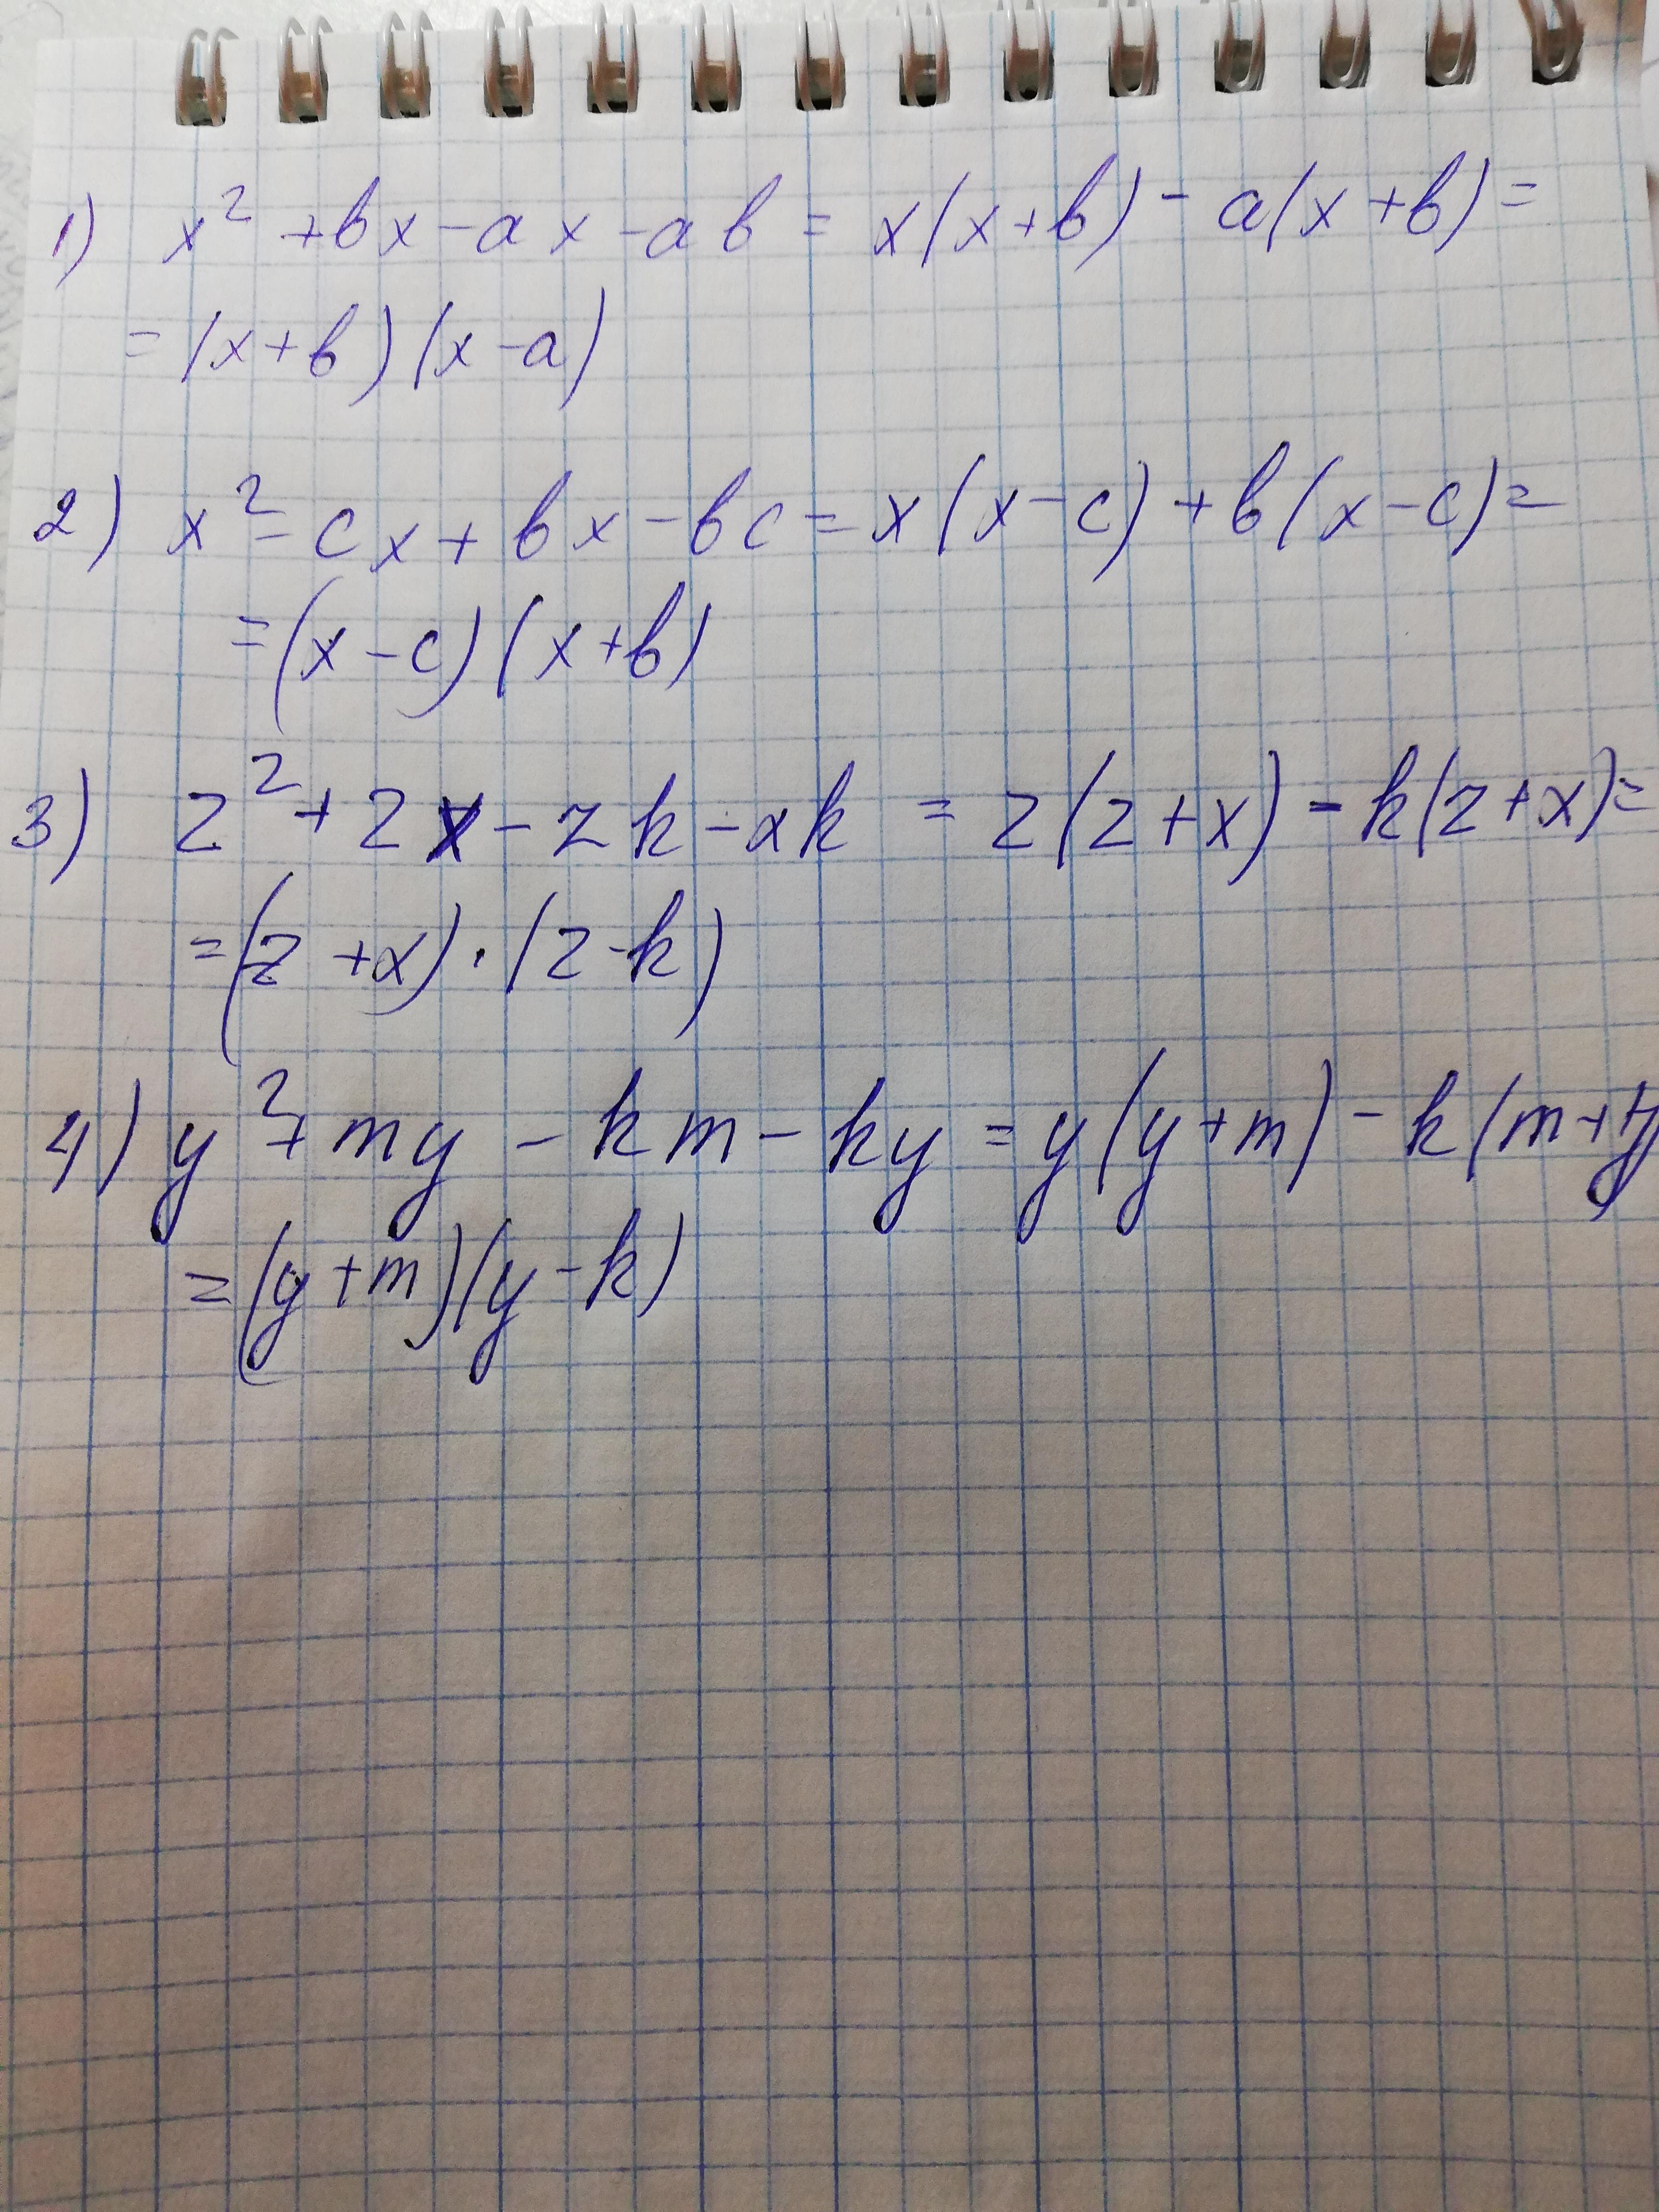 1) x² + bx - ax - ab = x(x+b) - a(x+b) =
= (x+b)(x-a)
2) x² - cx + bx - bc = x(x-c) + b(x-c) =
= (x-c)(x+b)
3) z² + zx - zk - xk = z(z+x) - k(z+x) =
= (z+x)·(z-k)
4) y² + my - km - ky = y(y+m) - k(m+y
= (y+m)(y-k)